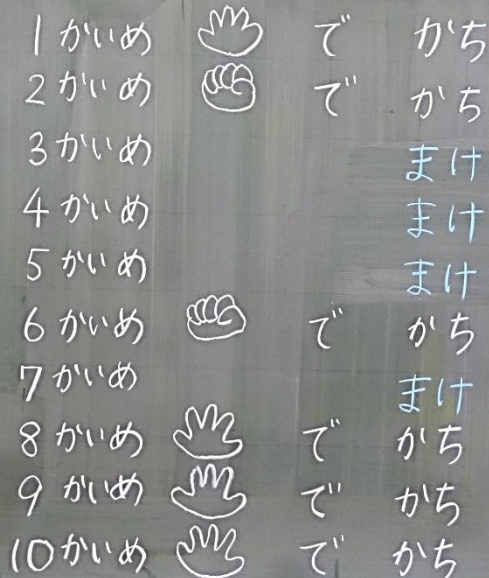 1かいめ で かち
2かいめ で かち
3かいめ まけ
4かいめ まけ
5かいめ まけ
6かいめ で かち
7かいめ まけ
8かいめ で かち
9かいめ で かち
10かいめ で かち